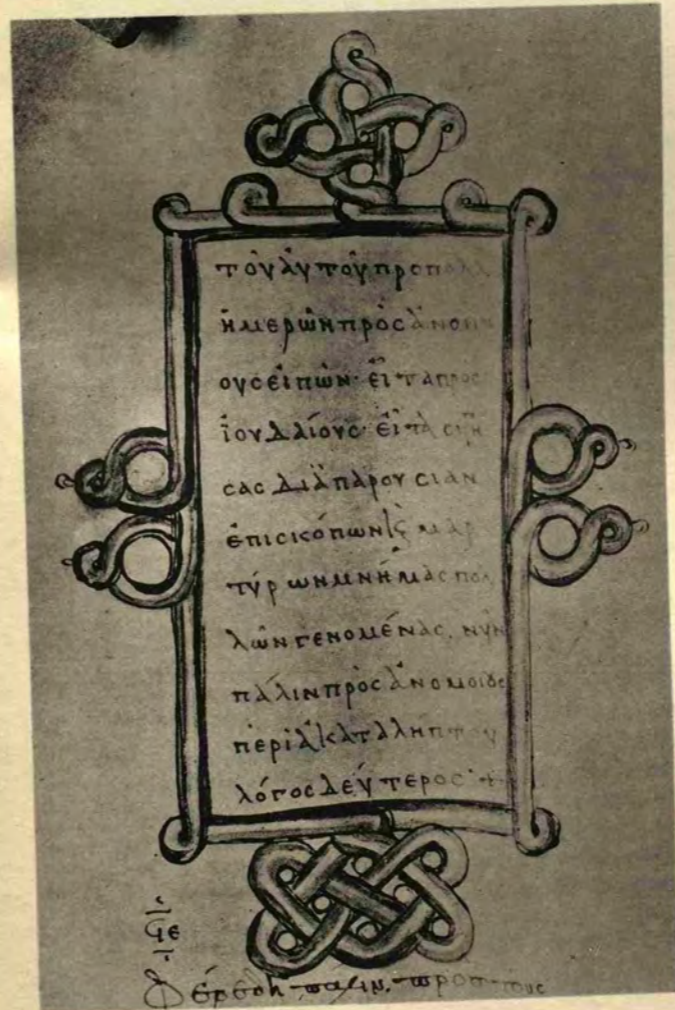 τοῦ αὐτοῦ προπολλ
ἡμερῶν πρὸς ἀνομοι
ους εἰπών· εἶτα πρὸς
ϊουδαίους· εἶτα σιγή
σας διὰ παρουσίαν
ἐπισκόπων ϗ μαρ
τύρων μνήμας πολ
λῶν γενομένας, νῦν
πάλιν πρὸς ἀνομοίους
περὶ ἀκαταλήπτου
λόγος δεύτερος
Φέρε δὴ πάλιν, πρὸς τοὺς